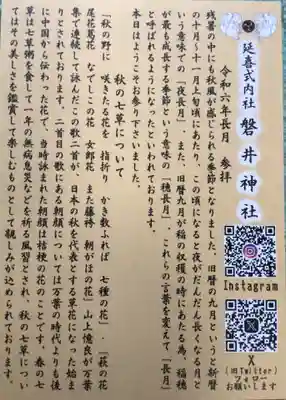 延喜式内社 磐井神社
令和六年長月 参拝
残暑の中にも秋風が感じられる季節となりました。旧暦の九月というと新暦
の十月〜十一月上旬頃にあたり、この頃になると夜がだんだん長くなる月と
いう意味での「夜長月」、また、旧暦九月が稲の収穫の時にあたる為、稲穂
が最も成長する季節という意味の「穂長月」、これらの言葉を変えて「長月」
と呼ばれるようになったといわれております。
本日はようこそお参り下さいました。
秋の七草について
「秋の野に 咲きたる花を 指折り かき数ふれば 七種の花」・「萩の花
尾花葛花 なでしこの花 女郎花 また藤袴 朝がほの花」山上憶良が万葉
集で連続して詠んだこの歌二首が、日本の秋を代表とする草花になった始ま
りとされております。二首目の歌にある朝顔については万葉の時代よりも後
に中国から伝わった花で、当時詠まれた朝顔は桔梗の花のことです。春の七
草は七草粥を食して一年の無病息災などを祈る風習とされ、秋の七草につい
てはその美しさを鑑賞して楽しむものとして親しみが込められております。
Instagram
X
(旧Twitter)
フォロー
お願いします